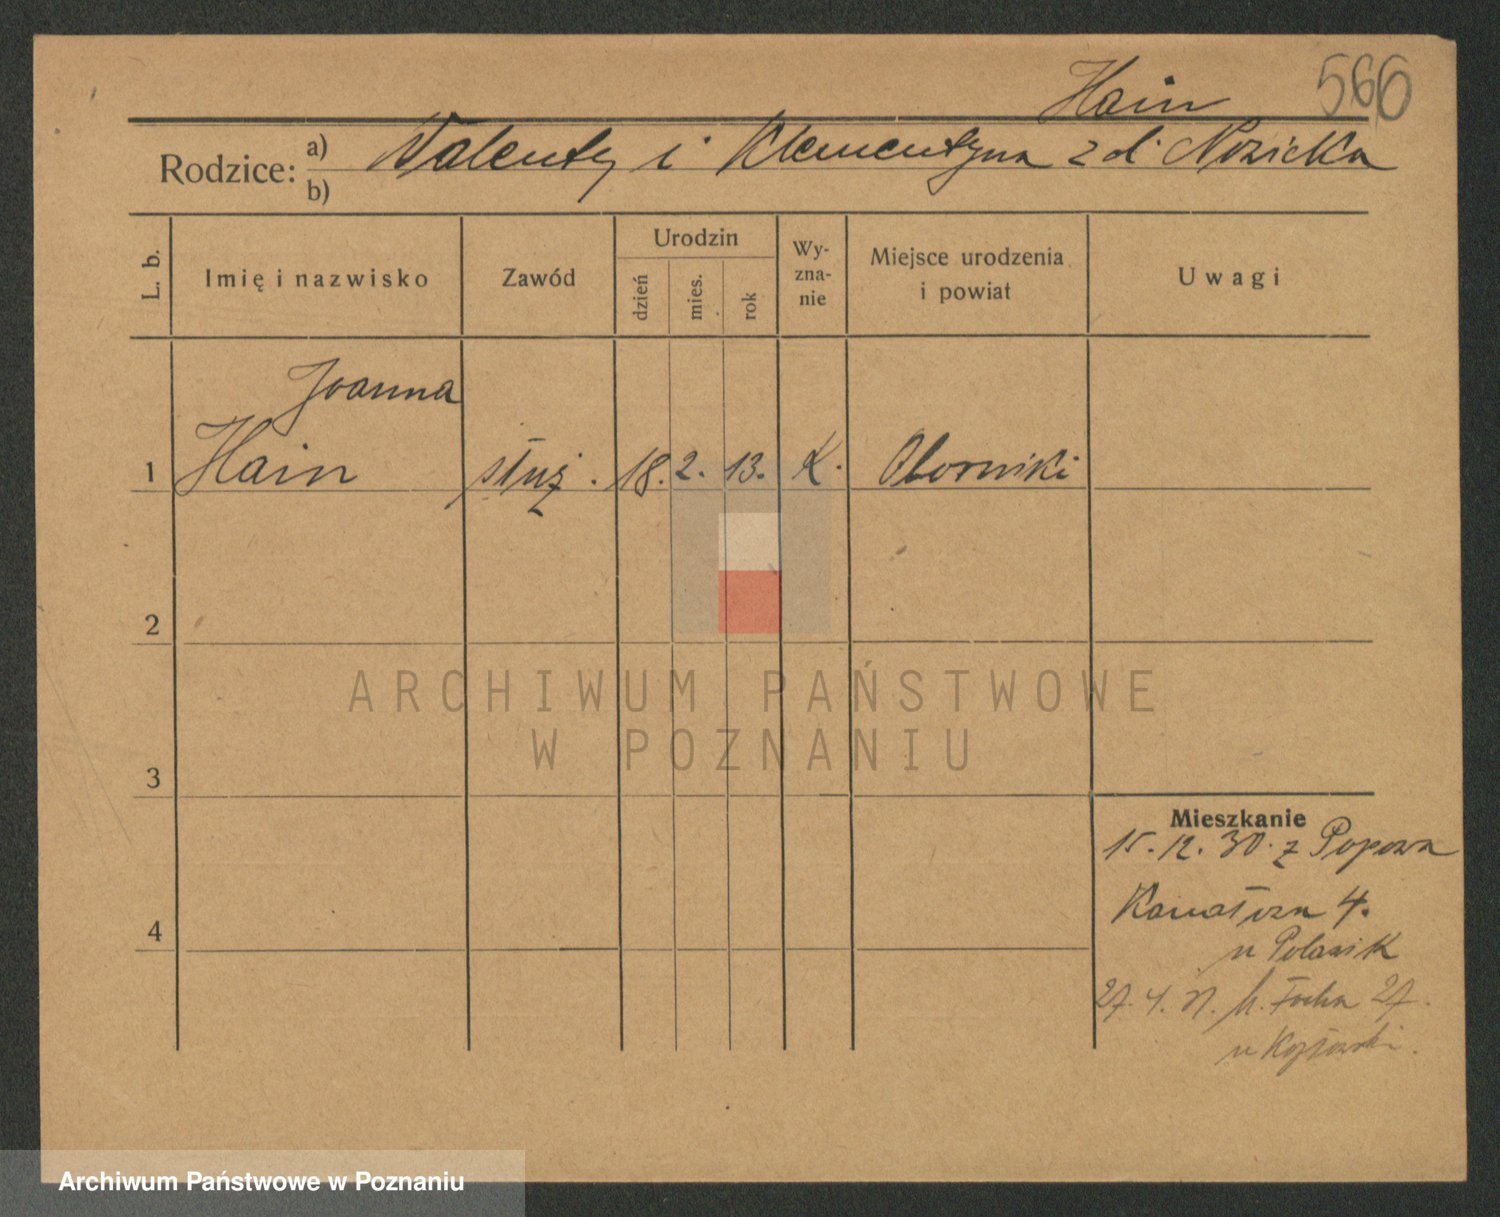 Hain 566
Rodzice: a) Walenty i Klementyna z d. Nozicka
b)
L. b.
Imię i nazwisko
Zawód
Urodzin
dzień
mies.
rok
Wy-
zna-
nie
Miejsce urodzenia
i powiat
Uwagi
Joanna
1 Hain służ. 18. 2. 13. K. Oborniki
2
3
4
Mieszkanie
15.12.30. z Popowa
4.
u Polasik
27. 4. 31. M. Focha 27.
u
ARCHIWUM PAŃSTWOWE
W POZNANIU
Archiwum Państwowe w Poznaniu